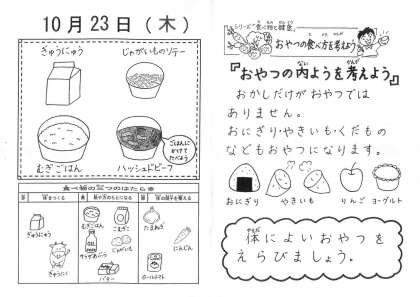 10月23日(木)
ぎゅうにゅう
じゃがいものソテー
むぎごはん
ハッシュドビーフ
ごはんに
かけて
たべよう
食べ物の三つのはたらき
ぎゅうにゅう
ぎゅうにく
むぎごはん
こむぎこ
サラダあぶら
じゃがいも
バター
たまねぎ
にんじん
ホールトマト
おやつの食べ方を考えよう
『おやつの内ようを考えよう』
おかしだけがおやつでは
ありません。
おにぎり・やきいも・くだもの
などもおやつになります。
おにぎり
やきいも
りんご
ヨーグルト
体によいおやつを
えらびましょう。